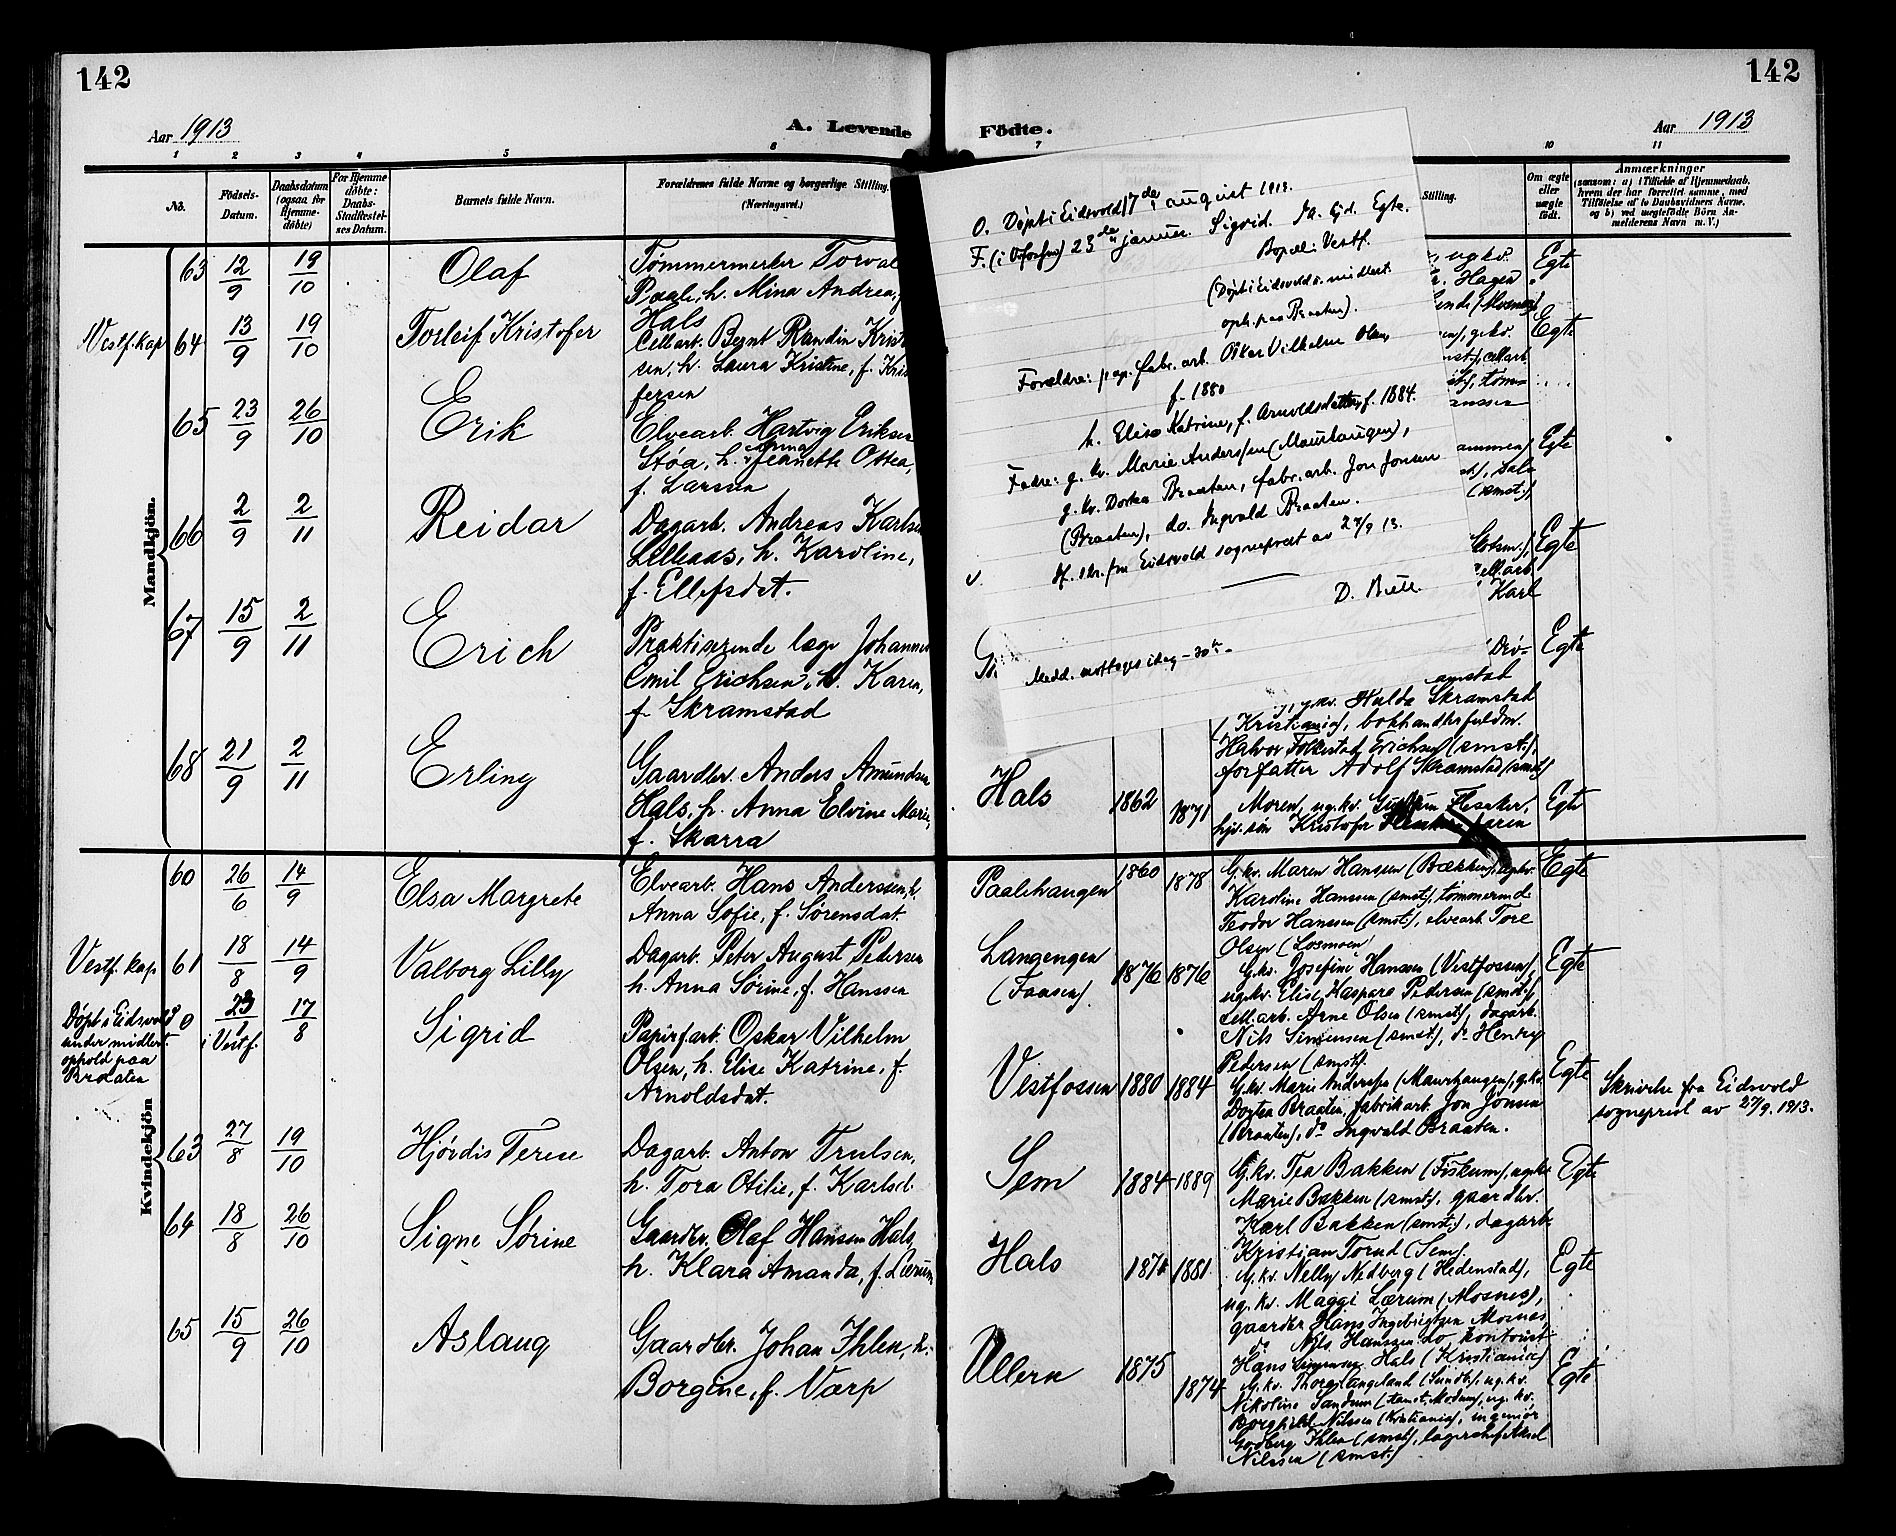 142
142
Aar 1913
A. Levende
Födte.
Aar 1913
1 2 3 4 5 6 7 10 11
No.
Födsels-Datum.
Daabsdatum (ogsaa for Hjemmedöbte)
For Hjemmedöbte: Daabs-Stadfæstelses Datum.
Barnets fulde Navn.
Forældrenes fulde Navne og borgerlige Stilling.
(Næringsvei.)
Stilling.
Om ægte eller uægte födt.
Anmærkninger
(saasom: a) i Tilfælde af Hjemmedaab, hvem der har forrettet samme, med Tilföielse af to Daabsvidners Navne, og b) ved uægtefödte Börn Anmelderens Navn m. V.)
Mandkjön.
63 12/9 19/10 Olaf
Tømmermerker Torval
Paale, h. Mina Andrea,
Hals
Egte
Vestf. kap 64 13/9 19/10 Torleif Kristofer
Cellarb. Bernt Randin Krist
sen, h. Laura Kristine, f. Kris
fersen
Egte
65 23/9 26/10 Erik
Elvearb. Hartvig Eriksen
Støa, h. Anna Jeanette Ottea,
f. Larsen
Egte
66 2/9 2/11 Reidar
Dagarb. Andreas Karlsen
Lilleaas, h. Karoline,
f. Ellefsdat.
Egte
67 15/9 2/11 Erich
Praktiserende læge Johannes
Emil Erichsen, h. Karen,
f. Skramstad
Egte
68 21/9 2/11 Erling
Gaardbr. Anders Amundsen
Hals, h. Anna Elvine Marie,
f. Skarra
O. Døpt i Eidsvold 17de august 1913.
F. (i Vfossen) 23de januar. Sigrid. Ja. Gjd. Egte.
Bopæl: Vestf.
(Døpt i Eidsvold u. midlert.
oph. paa Braaten).
Forældre: pap. fabr. arb. Oskar Vilhelm Olsen,
f. 1880
h. Elise Katrine, f. Arnoldsdatter, f. 1884.
Fadre: g. kv. Marie Anderssen (Maurhaugen),
g. kv. Dortea Braaten, fabr. arb. Jon Jonsen
(Braaten), do. Ingvald Braaten.
skr. fra Eidsvold sogneprest av 27/9 13.
Medd. mottages idag
Karl
Hulda Skramstad
(Kristiania), bokhandlerfuldm.
Halvor Folkestad Erichsen (smst.),
forfatter Adolf Skramstad (smst)
Hals 1862 1871
Moren, ug. kv.
Kristofer
Egte
Kvindekjön
60 26/6 14/9 Elsa Margrete
Elvearb. Hans Anderssen, h.
Anna Sofie, f. Sørensdat.
Paalehaugen 1860 1878
G. kv. Maren Hansen (Bækken), ugkv.
Karoline Hanssen (smst), tømmermd.
Teodor Hanssen (smst), elvearb. Tore
Olsen (Losmoen)
Egte
Vestf. kap 61 18/8 14/9 Valborg Lilly
Dagarb. Peter August Pedersen
h. Anna Sørine, f. Hanssen
Langengen
(Faasen) 1876 1876
G. kv. Josefine Hanssen (Vestfossen),
ugkv. Elise Kaspara Pedersen (smst),
cell. arb. Arne Olsen (smst), dagarb.
Nils Simensen (smst), do Henry
Pedersen (smst).
Egte
Døpt i Eidsvold
under midlert.
ophold paa
Braaten
0 23/1 i Vestf. 17/8 Sigrid
Papirf. arb. Oskar Vilhelm
Olsen, h. Elise Katrine, f.
Arnoldsdat.
Vestfossen 1880 1884
G. kv. Marie Anderssen (Maurhaugen), g. kv.
Dortea Braaten, fabrikarb. Jon Jonsen
(Braaten), do Ingvald Braaten.
Egte
Skrivelse fra Eidsvold
sogneprest av 27/9. 1913.
63 27/8 19/10 Hjørdis Terese
Dagarb. Anton Trulsen,
h. Tora Otilie, f. Karlsd.
Sem 1884 1889
G. kv. Tea Bakken (Fiskum), ug. kv.
Marie Bakken (smst), gaardbr.
Karl Bakken (smst), dagarb.
Kristian Torud (Sem).
Egte
64 18/8 26/10 Signe Sørine
Gaardbr. Olaf Hansen Hals,
h. Klara Amanda, f. Lærum
Hals 1881
G. kv. Nelly Nedberg (Hedenstad),
ug. kv. Maggi Lærum (Mosnes),
gaardbr. Hans Ingebrigtsen Mosnes,
do Nils Hanssen do, kontorist
Hans Hals (Kristiania)
Egte
65 15/9 26/10 Aslaug
Gaardbr. Johan Ihlen, h.
Borgine, f. Værp
Ullern 1875 1874
Nikoline Sandum (smst. Modum), ug. kv.
Borghild Nilssen (Kristiania), ingeniør
Godberg Ihlen (smst), lagerchef Aksel
Nilssen (smst.)
Egte